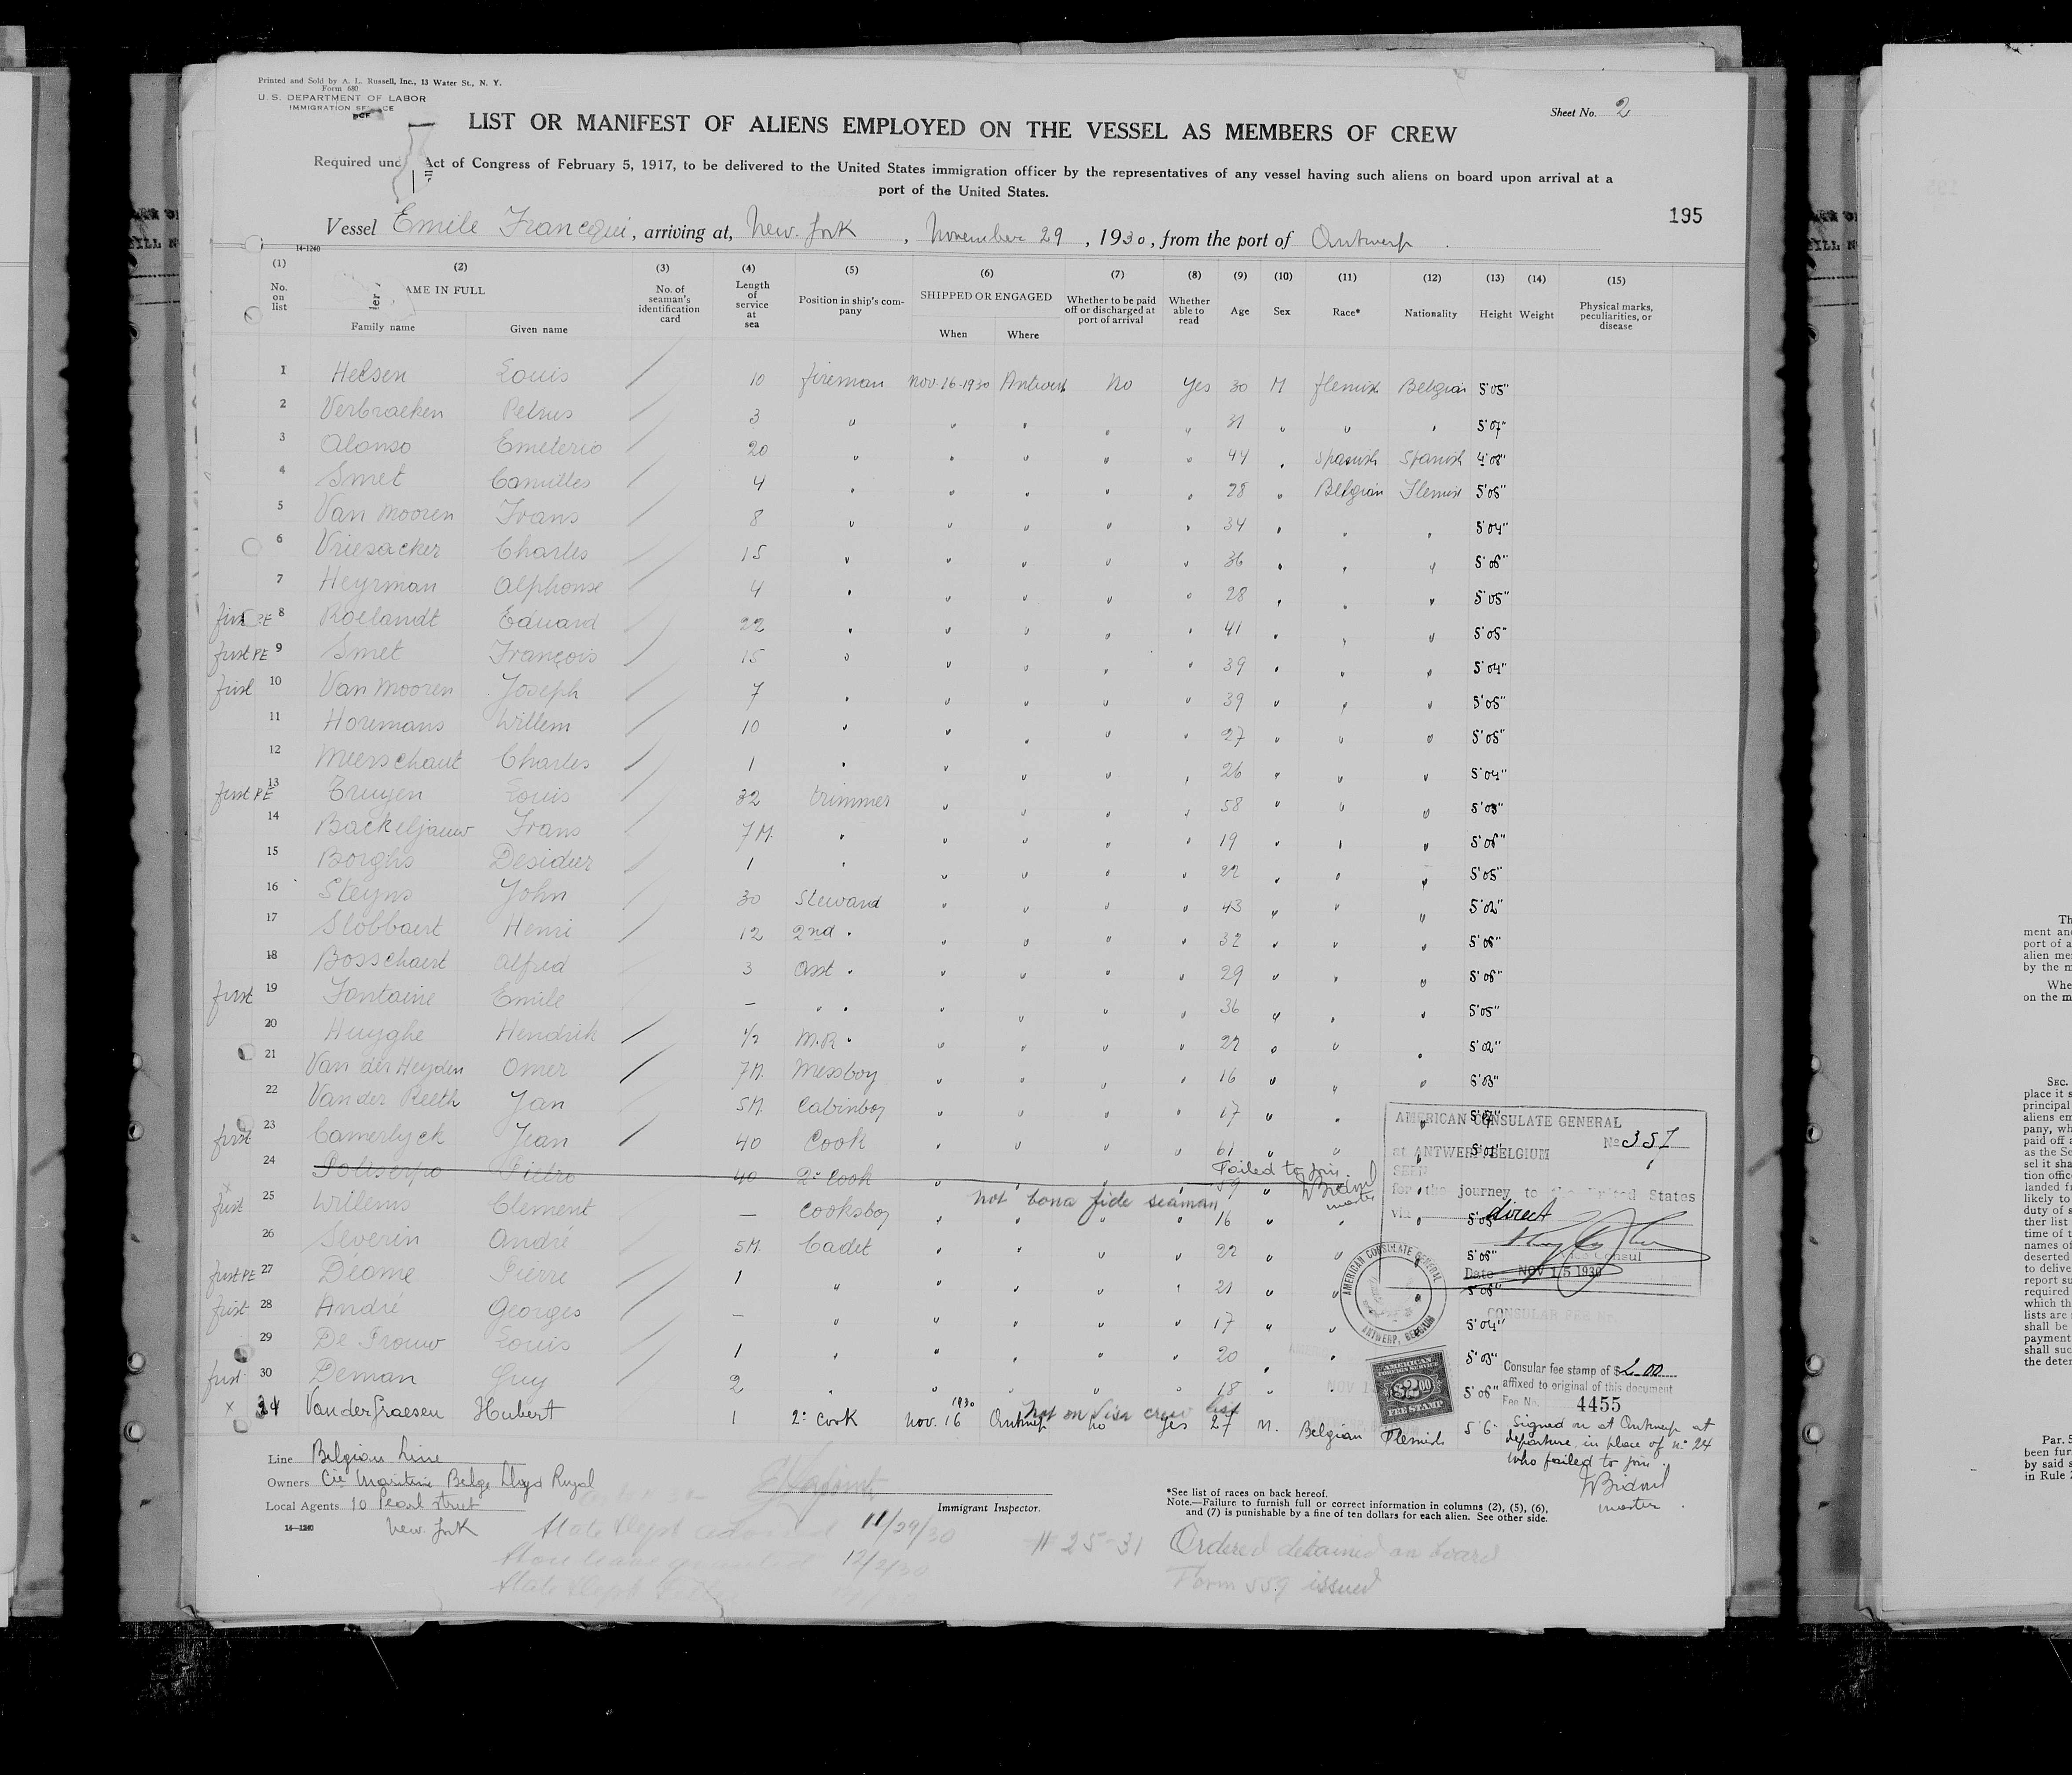 Printed and Sold by A. L. Russell, Inc., 13 Water St., N. Y.
Form 680
U. S. DEPARTMENT OF LABOR
IMMIGRATION
Sheet No. 2
LIST OR MANIFEST OF ALIENS EMPLOYED ON THE VESSEL AS MEMBERS OF CREW
Required und Act of Congress of February 5, 1917, to be delivered to the United States immigration officer by the representatives of any vessel having such aliens on board upon arrival at a
port of the United States.
195
Vessel Emile Francqui, arriving at, New-York, November 29, 1930, from the port of Antwerp.
14-1240
(1) (2) (3) (4) (5) (6) (7) (8) (9) (10) (11) (12) (13) (14) (15)
No. on list AME IN FULL Family name Given name No. of seaman's identification card Length of service at sea Position in ship's company SHIPPED OR ENGAGED When Where Whether to be paid off or discharged at port of arrival Whether able to read Age Sex Race* Nationality Height Weight Physical marks, peculiarities, or disease
1 Helsen Louis / 10 fireman Nov. 16-1930 Antwerp No Yes 30 M flemish Belgian 5'05"
2 Verbraeken Petrus / 3 " " " " " 31 " " " 5'07"
3 Alonso Emeterio / 20 " " " " " 44 " Spanish Spanish 4'08"
4 Smet Camilles / 4 " " " " " 28 " Belgian Flemish 5'05"
5 Van Mooren Frans / 8 " " " " " 34 " " " 5'04"
6 Vriesacker Charles / 15 " " " " " 36 " " " 5'06"
7 Heyrman Alphonse / 4 " " " " " 28 " " " 5'05"
first PE 8 Roelandt Eduard / 22 " " " " " 41 " " " 5'05"
first PE 9 Smet François / 15 " " " " " 39 " " " 5'04"
first 10 Van Mooren Joseph / 7 " " " " " 39 " " " 5'05"
11 Horemans Willem / 10 " " " " " 27 " " " 5'05"
12 Meerschaut Charles / 1 " " " " " 26 " " " 5'04"
first PE 13 Truyen Louis / 32 trimmer " " " " 58 " " " 5'03"
14 Backeljauw Frans / 7 M. " " " " " 19 " " " 5'06"
15 Borghs Desideer / 1 " " " " " 22 " " " 5'05"
16 Steyns John / 30 Steward " " " " 43 " " " 5'02"
17 Slobbaert Henri / 12 2nd " " " " " 32 " " " 5'06"
18 Bosschaert Alfred / 3 Asst " " " " " 29 " " " 5'06"
first 19 Fontaine Emile / — " " " " " " 36 " " " 5'05"
20 Huyghe Hendrik / 1/2 M.R. " " " " " 22 " " " 5'02"
21 Van der Heyden Omer / 7M. Messboy " " " " 16 " " " 5'03"
22 Van der Reeth Jan / 5M. Cabinboy " " " " 17 " "
first 23 Camerlyck Jean / 40 Cook " " " " 61 " "
24 Pietro 40 2° Cook " " " " 59 " Failed to join.
master
first 25 Willems Clement — Cooksboy " " " " 16 " " " not bona fide seaman
26 Severin André / 5M. Cadet " " " " 22 " " 5'06"
first PE 27 Déome Pierre / 1 " " " " " 21 " " 5'06"
first 28 André Georges / — " " " " " 17 " " 5'04"
29 De Prouw Louis / 1 " " " " " 20 " 5'03"
first 30 Deman Guy / 2 " " " " " 18 " 5'06"
not on visa crew list
x 24 Vandergraesen Hubert 1 2° Cook Nov. 16 1930 Antwerp no yes 27 m. Belgian Flemish 5'6"
AMERICAN CONSULATE GENERAL
No 357
at ANTWERP, BELGIUM
SEEN
for the journey to the United States
via direct
Vice Consul
Date NOV 15 1930
AMERICAN CONSULATE GENERAL
ANTWERP, BELGIUM
CONSULAR FEE No.
AMERICAN
FOREIGN SERVICE
$2.00
FEE STAMP
Consular fee stamp of $2.00
affixed to original of this document
Fee No. 4455
Signed on at Antwerp at
departure, in place of n° 24
who failed to join.
master.
Line Belgian Line
Owners Cie Maritime Belge Lloyd Royal
Local Agents 10 Pearl street
New-York
14-1240
Immigrant Inspector.
*See list of races on back hereof.
Note.—Failure to furnish full or correct information in columns (2), (5), (6),
and (7) is punishable by a fine of ten dollars for each alien. See other side.
State Dept 11/29/30
Shore leave granted 12/2/30
State Dept
# 25-31 Ordered detained on board
Form 559 issued